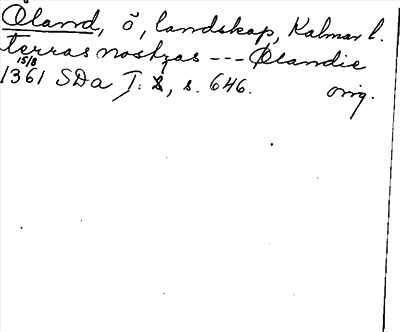 Öland, ö, landskap, Kalmar l.
terras nostras --- Ølandie
15/8
1361 SDa T. 8, s. 646. orig.